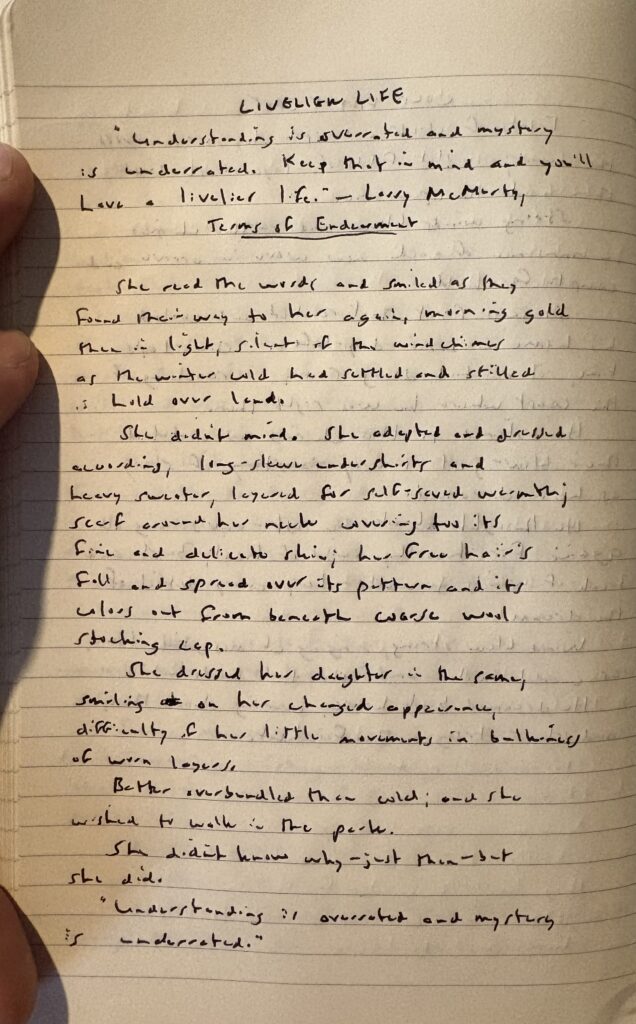 LIVELIER LIFE
"Understanding is overrated and mystery
is underrated. Keep that in mind and you'll
have a livelier life." - Larry McMurtry,
Terms of Endearment
She read the words and smiled as they
found their way to her again, morning gold
then in light, silent of the windchimes
as the winter cold had settled and stilled
its hold over land.
She didn't mind. She adapted and dressed
according, long-sleeve undershirts and
heavy sweater, layered for self-saved warmth;
scarf around her neck covering too its
fine and delicate skin; her free hair's
fall and spread over its pattern and its
colors out from beneath coarse wool
stocking cap.
She dressed her daughter in the same,
smiling on her changed appearance,
difficulty of her little movements in bulkiness
of worn layers.
Better overbundled than cold; and she
wished to walk in the park.
She didn't know why-just then-but
she did.
"Understanding is overrated and mystery
is underrated."